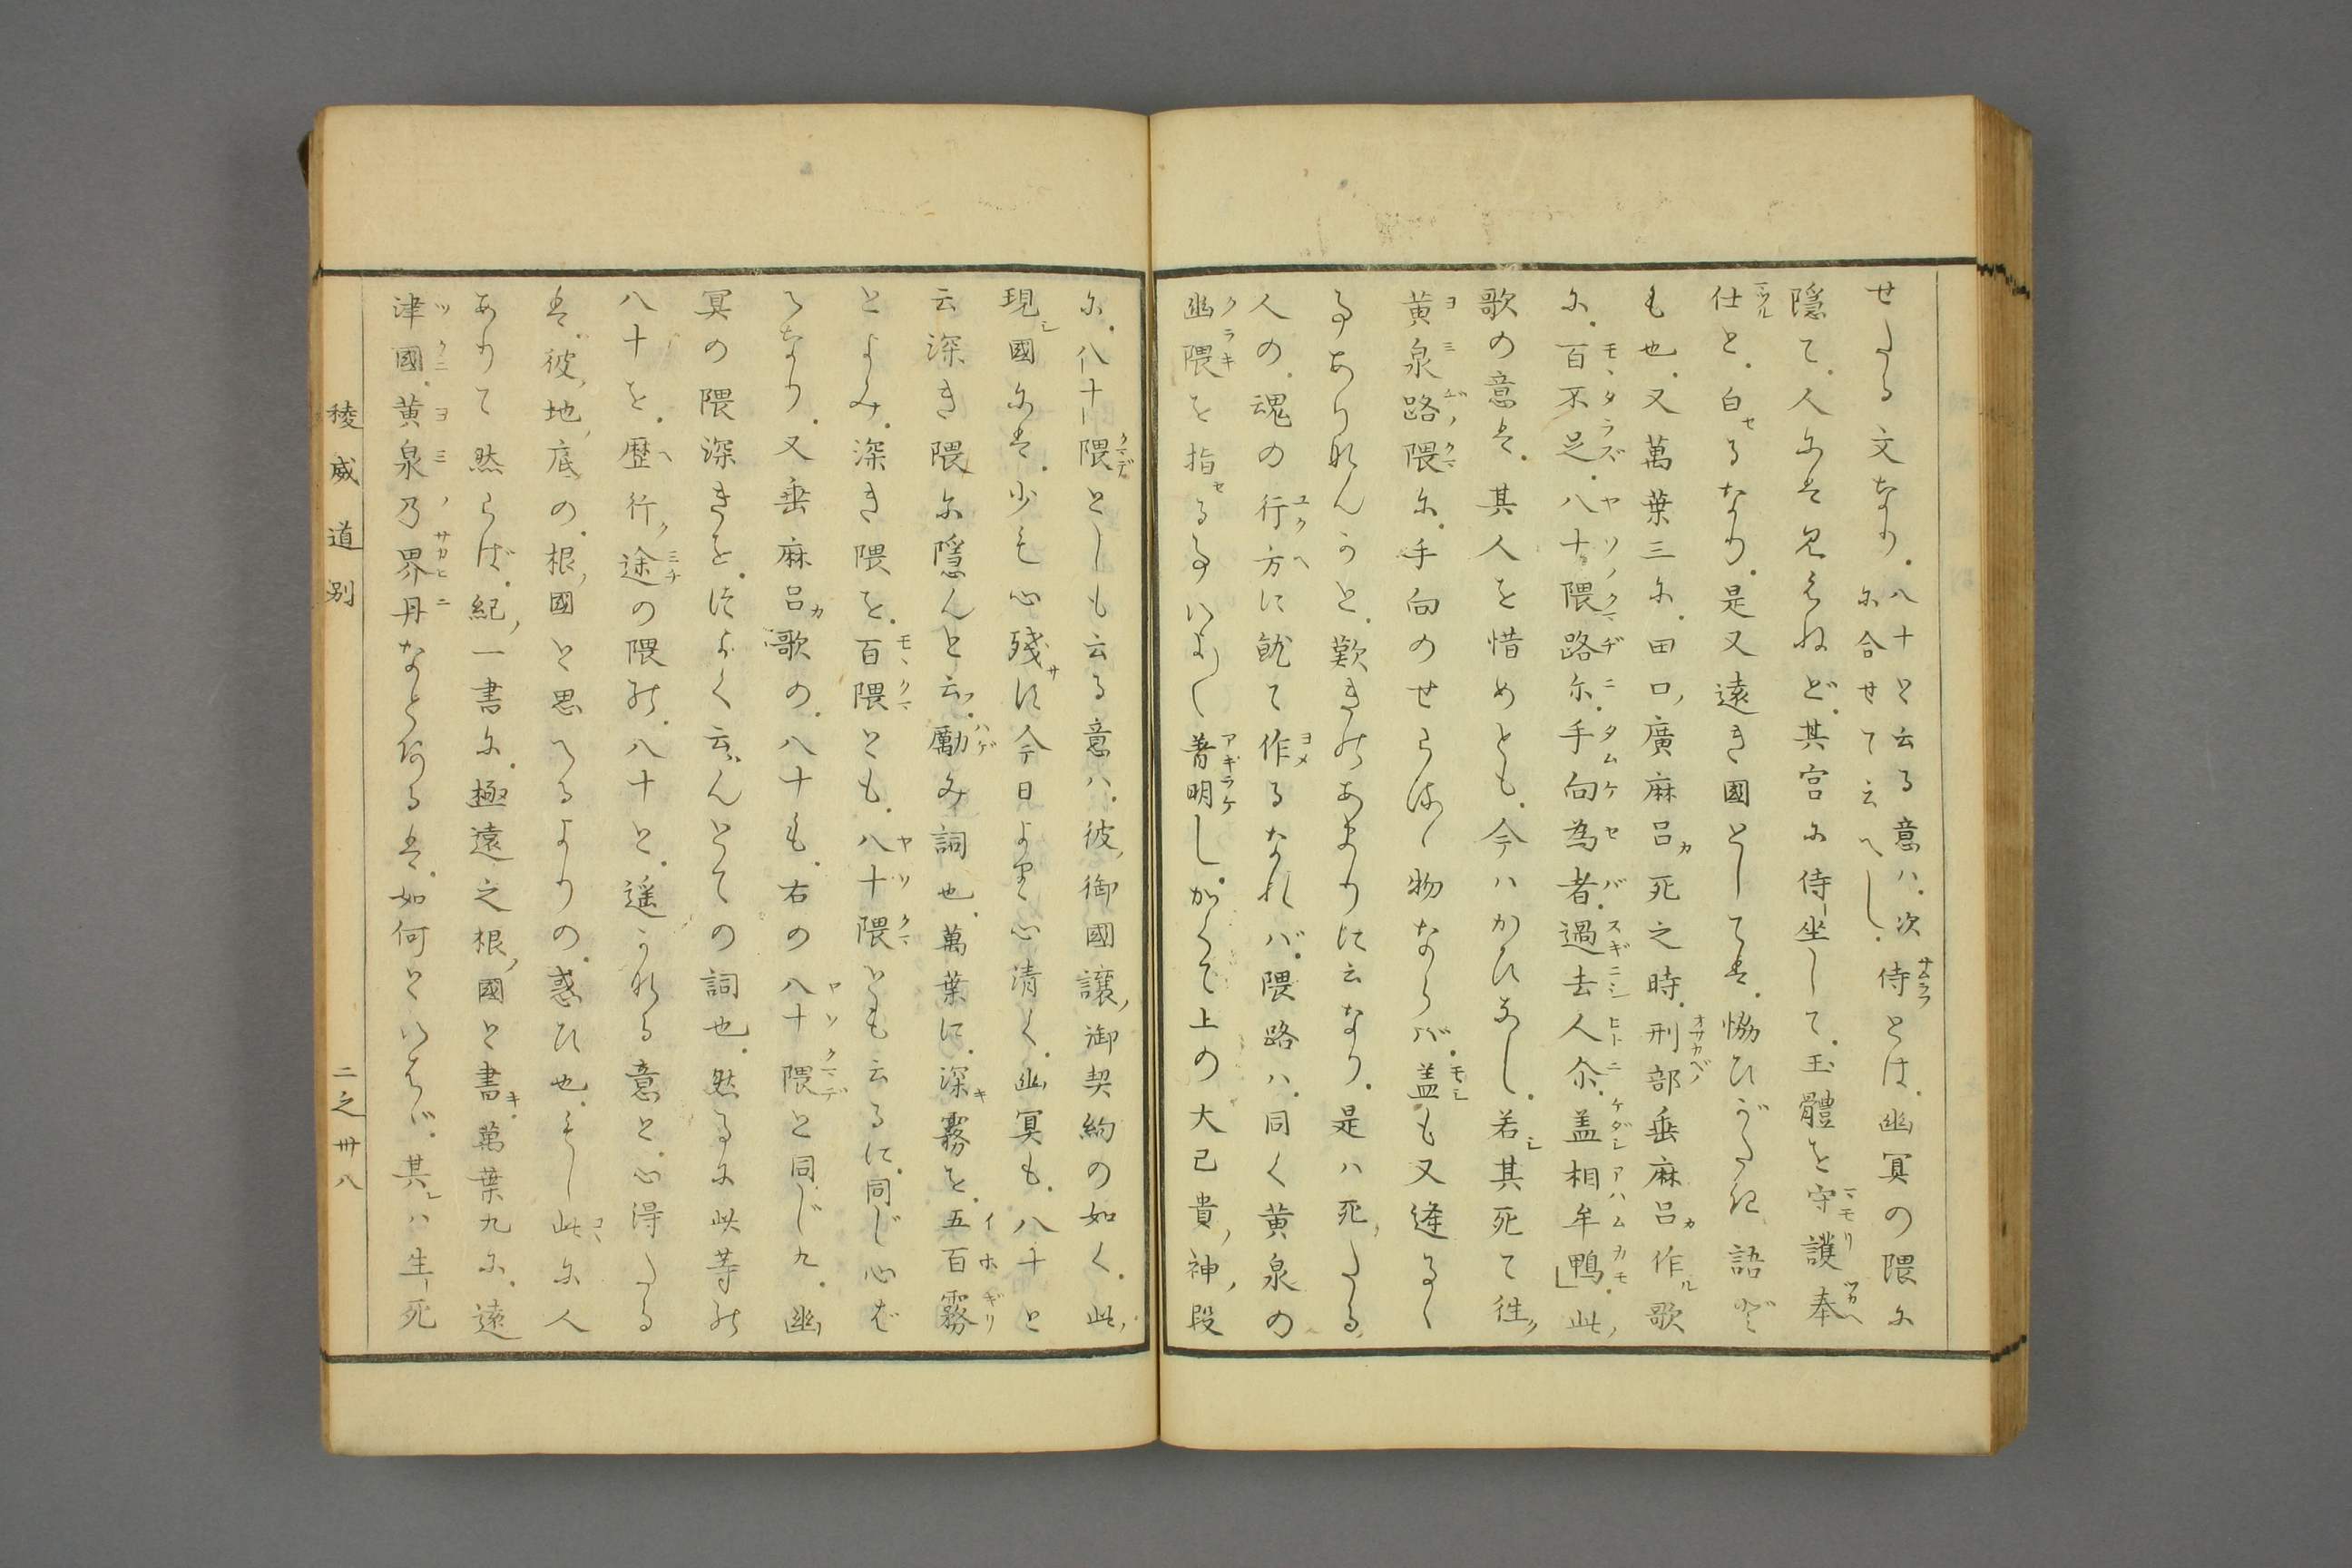 せたる文なり。八十と云る意ハ。次
尓合せて云へし。侍とは。幽冥の隈尓
隱て。人尓そ見えねど。其宮尓侍坐して。玉體を守護奉
仕と。白せるなり。是又遠き國としてそ。恊ひがたき語ぞ
も也。又萬葉三尓。田口廣麻呂死之時。刑部垂麻呂作歌
尓。百不足。八十隈路尓。手向為者。過去人尓。盖相牟鴨」此
歌の意そ。其人を惜めとも。今ハかひなし。若其死て往
黄泉路隈尓。手向のせらるゝ物ならバ。盖も又逢る
事ありなんかと。歎きのあまりに云なり。是ハ死たる
人の。魂の行方に就て作るなれバ。隈路ハ。同く黄泉の
幽隈を指せる事いよゝ著明し。かくて上の大己貴神段
尓。八十隈としも云る意ハ。彼御國譲御契約の如く。此
現國尓そ。少も心殘さに今日より心清く。幽冥も。八十と
云深き隈尓隱んと云。勵み詞也。萬葉に。深霧を。五百霧
とよみ。深き隈を。百隈とも。八十隈とも云るに。同じ心ば
へなり。又垂麻呂歌の。八十も。右の八十隈と同じ九。幽
冥の隈深きを。つよく云んとての詞也。然る尓此等の
八十を。歴行途の隈の。八十と。遥かなる意と。心得たる
そ。彼地底の。根國と思へるよりの。惑ひ也。そし此尓人
ありて然らば。紀一書尓。極遠之根國と書。萬葉九尓。遠
津國。黄泉乃界丹などあるそ。如何といはゞ。其ハ生死
稜威道別
二之卅八